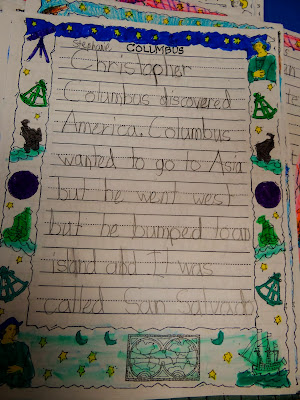 Stephanie COLUMBUS
Christopher
Columbus discovered
America. Columbus
wanted to go to Asia
but he went west
but he bumped to an
island and It was
called San Salvado